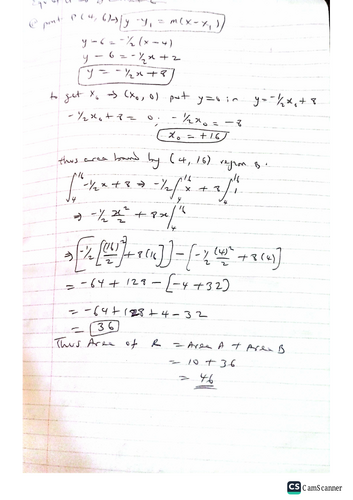 @ point P(4, 6) → y - y₁ = m(x - x₁)
y - 6 = -½(x - 4)
y - 6 = -½x + 2
y = -½x + 8
to get x₀ → (x₀, 0) put y=0 in y = -½x₀ + 8
-½x₀ + 8 = 0; -½x₀ = -8
x₀ = +16
thus area bound by (4, 16) region B.
∫₄¹⁶ -½x + 8 → -½∫₄¹⁶ x + 8∫₄¹⁶ 1
→ -½ x²/2 + 8x |₄¹⁶
→ [-½[(16)²/2] + 8(16)] - [-½ (4)²/2 + 8(4)]
= -64 + 128 - [-4 + 32]
= -64 + 128 + 4 - 32
= 36
Thus Area of R = Area A + Area B
= 10 + 36
= 46
CS CamScanner